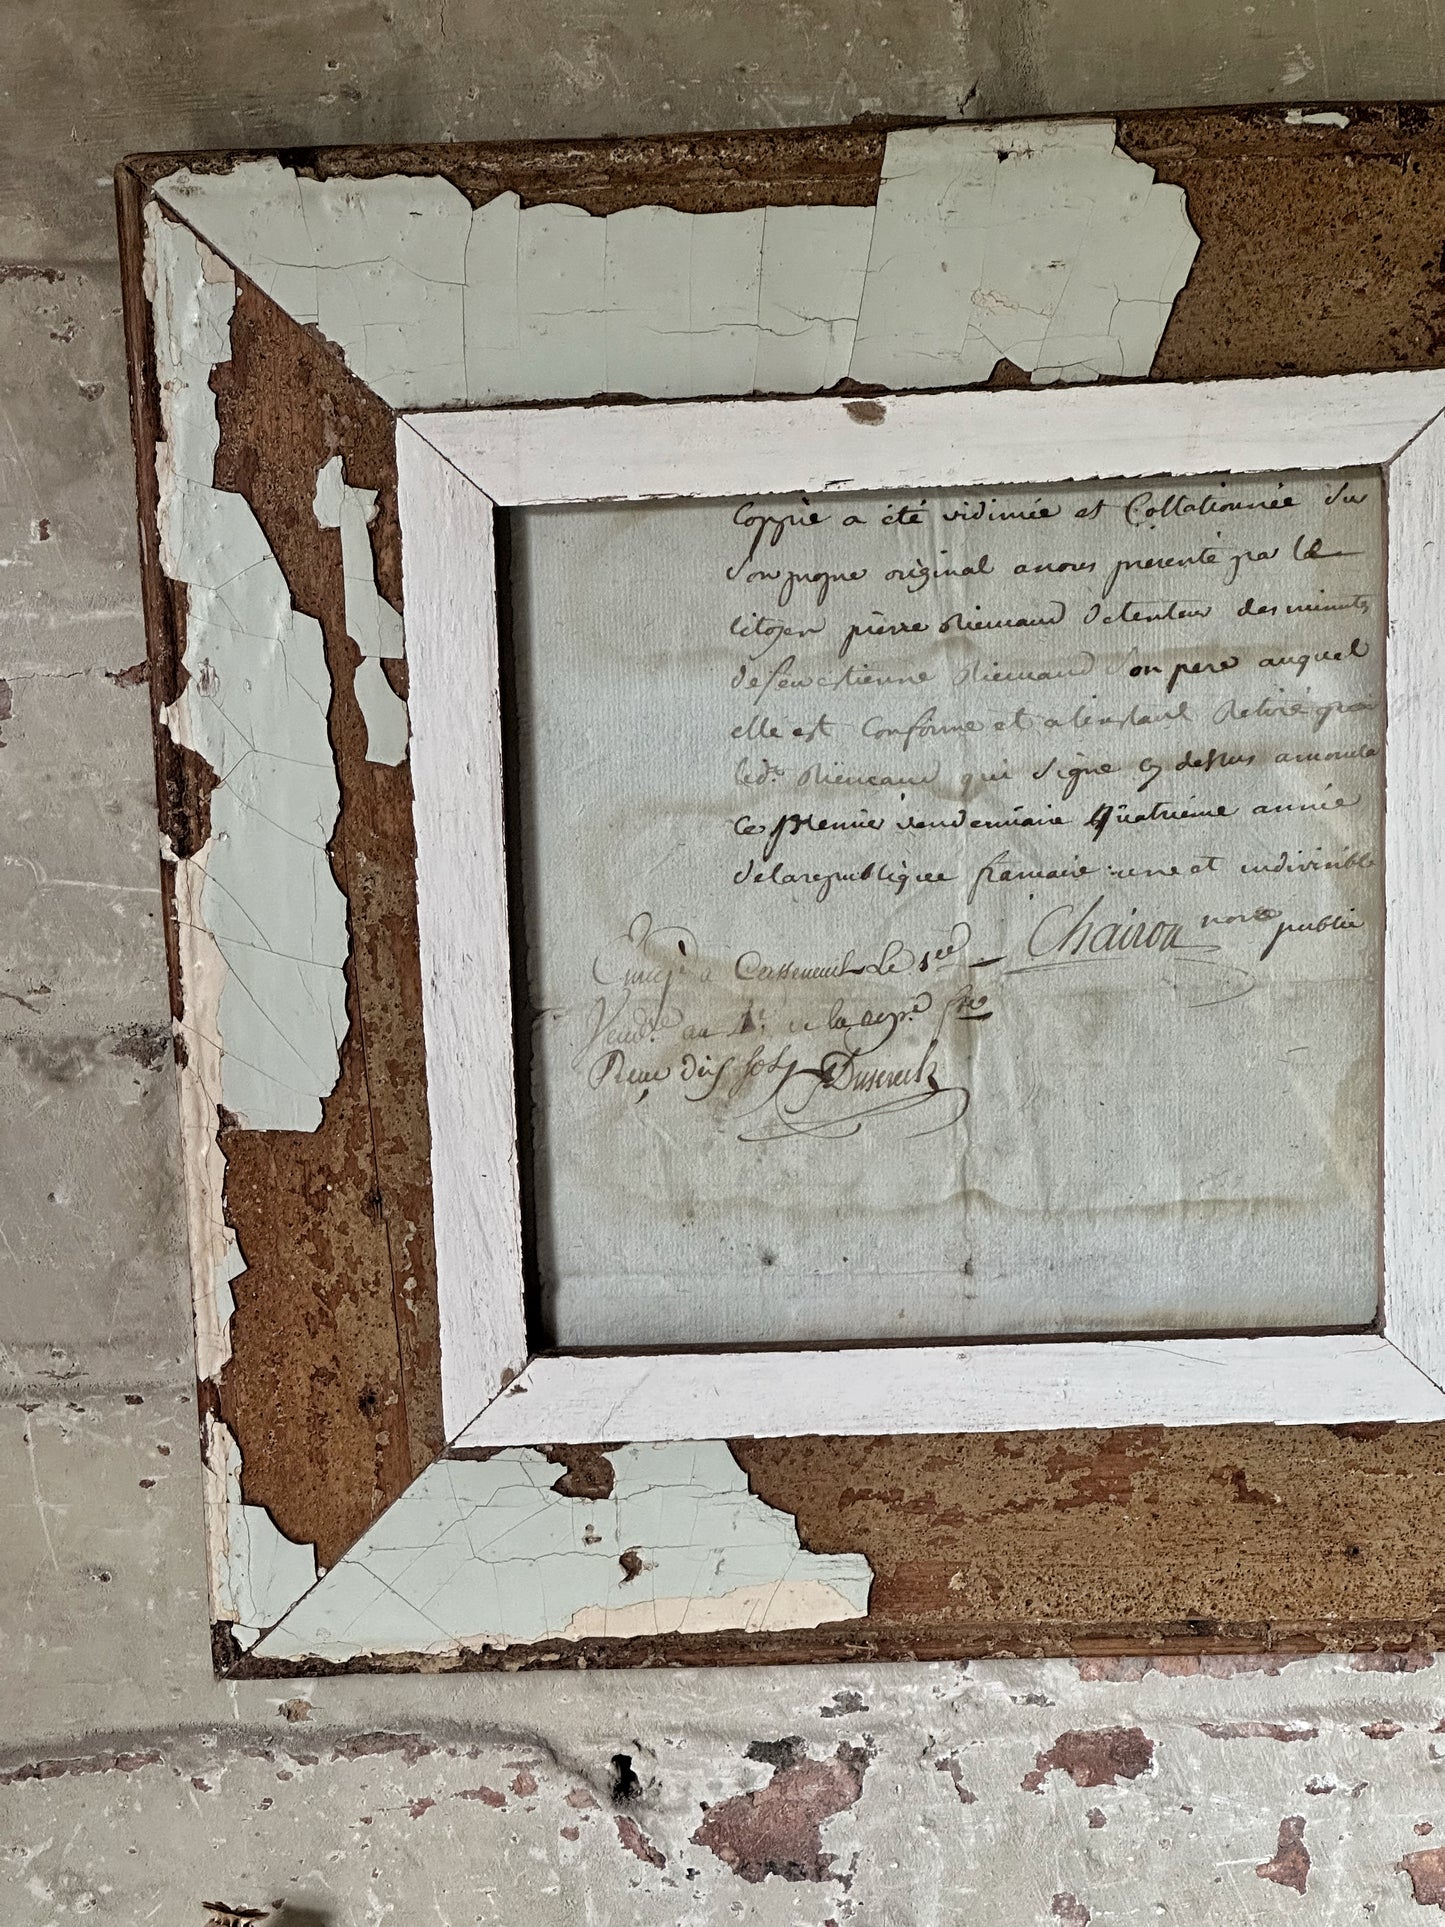 Coppie a été vidimée et Collationnée du
son propre original anous présenté par le
Citoyen pierre Rieucaud détenteur des minutes
defeu etienne Rieucaud son pere auquel
elle est Conforme et alinstant Retiré par
ledt Rieucaud qui signe cy dessus a
ce premier vendemiaire quatrieme année
delarepublique francaise une et indivisible
Chairou nore public
a Casseneuil Le 1er
Vendre au 4e de la repe fse
Reçu dix sols